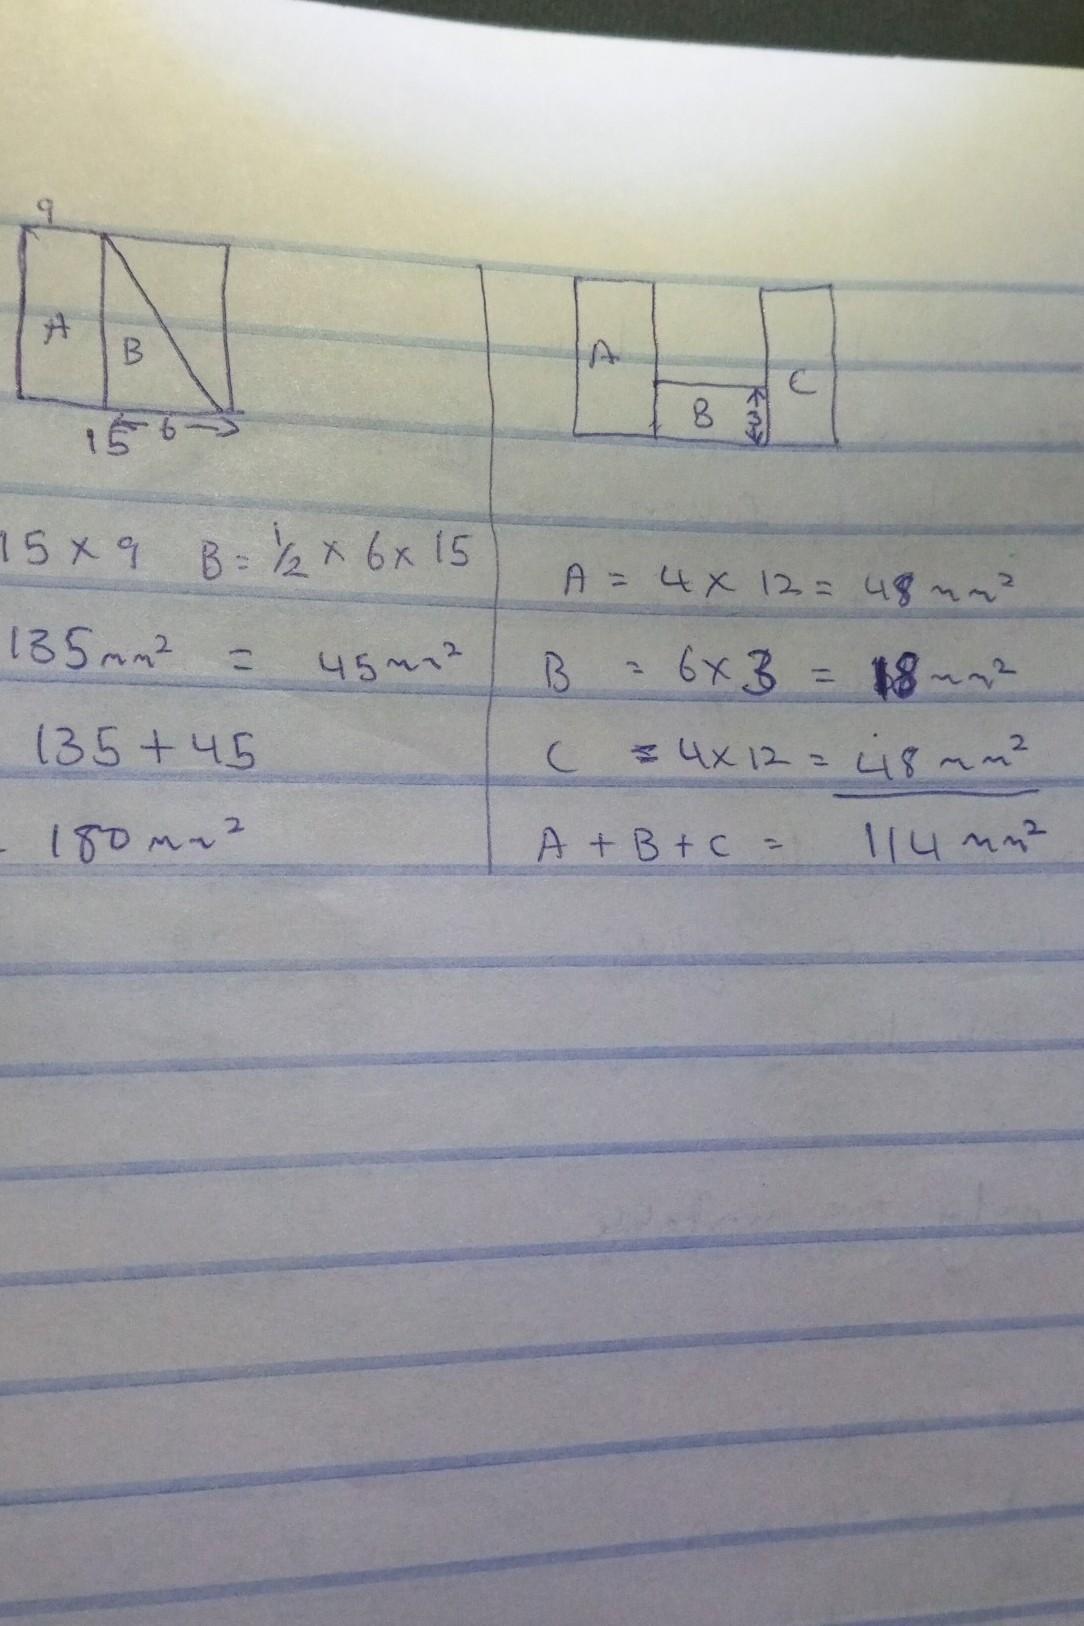 9
A
B
15
6
15 x 9 B = 1/2 x 6 x 15
135 mm² = 45 mm²
135 + 45
180 mm²
A
B
3
C
A = 4 x 12 = 48 mm²
B = 6 x 3 = 18 mm²
C = 4 x 12 = 48 mm²
A + B + C = 114 mm²